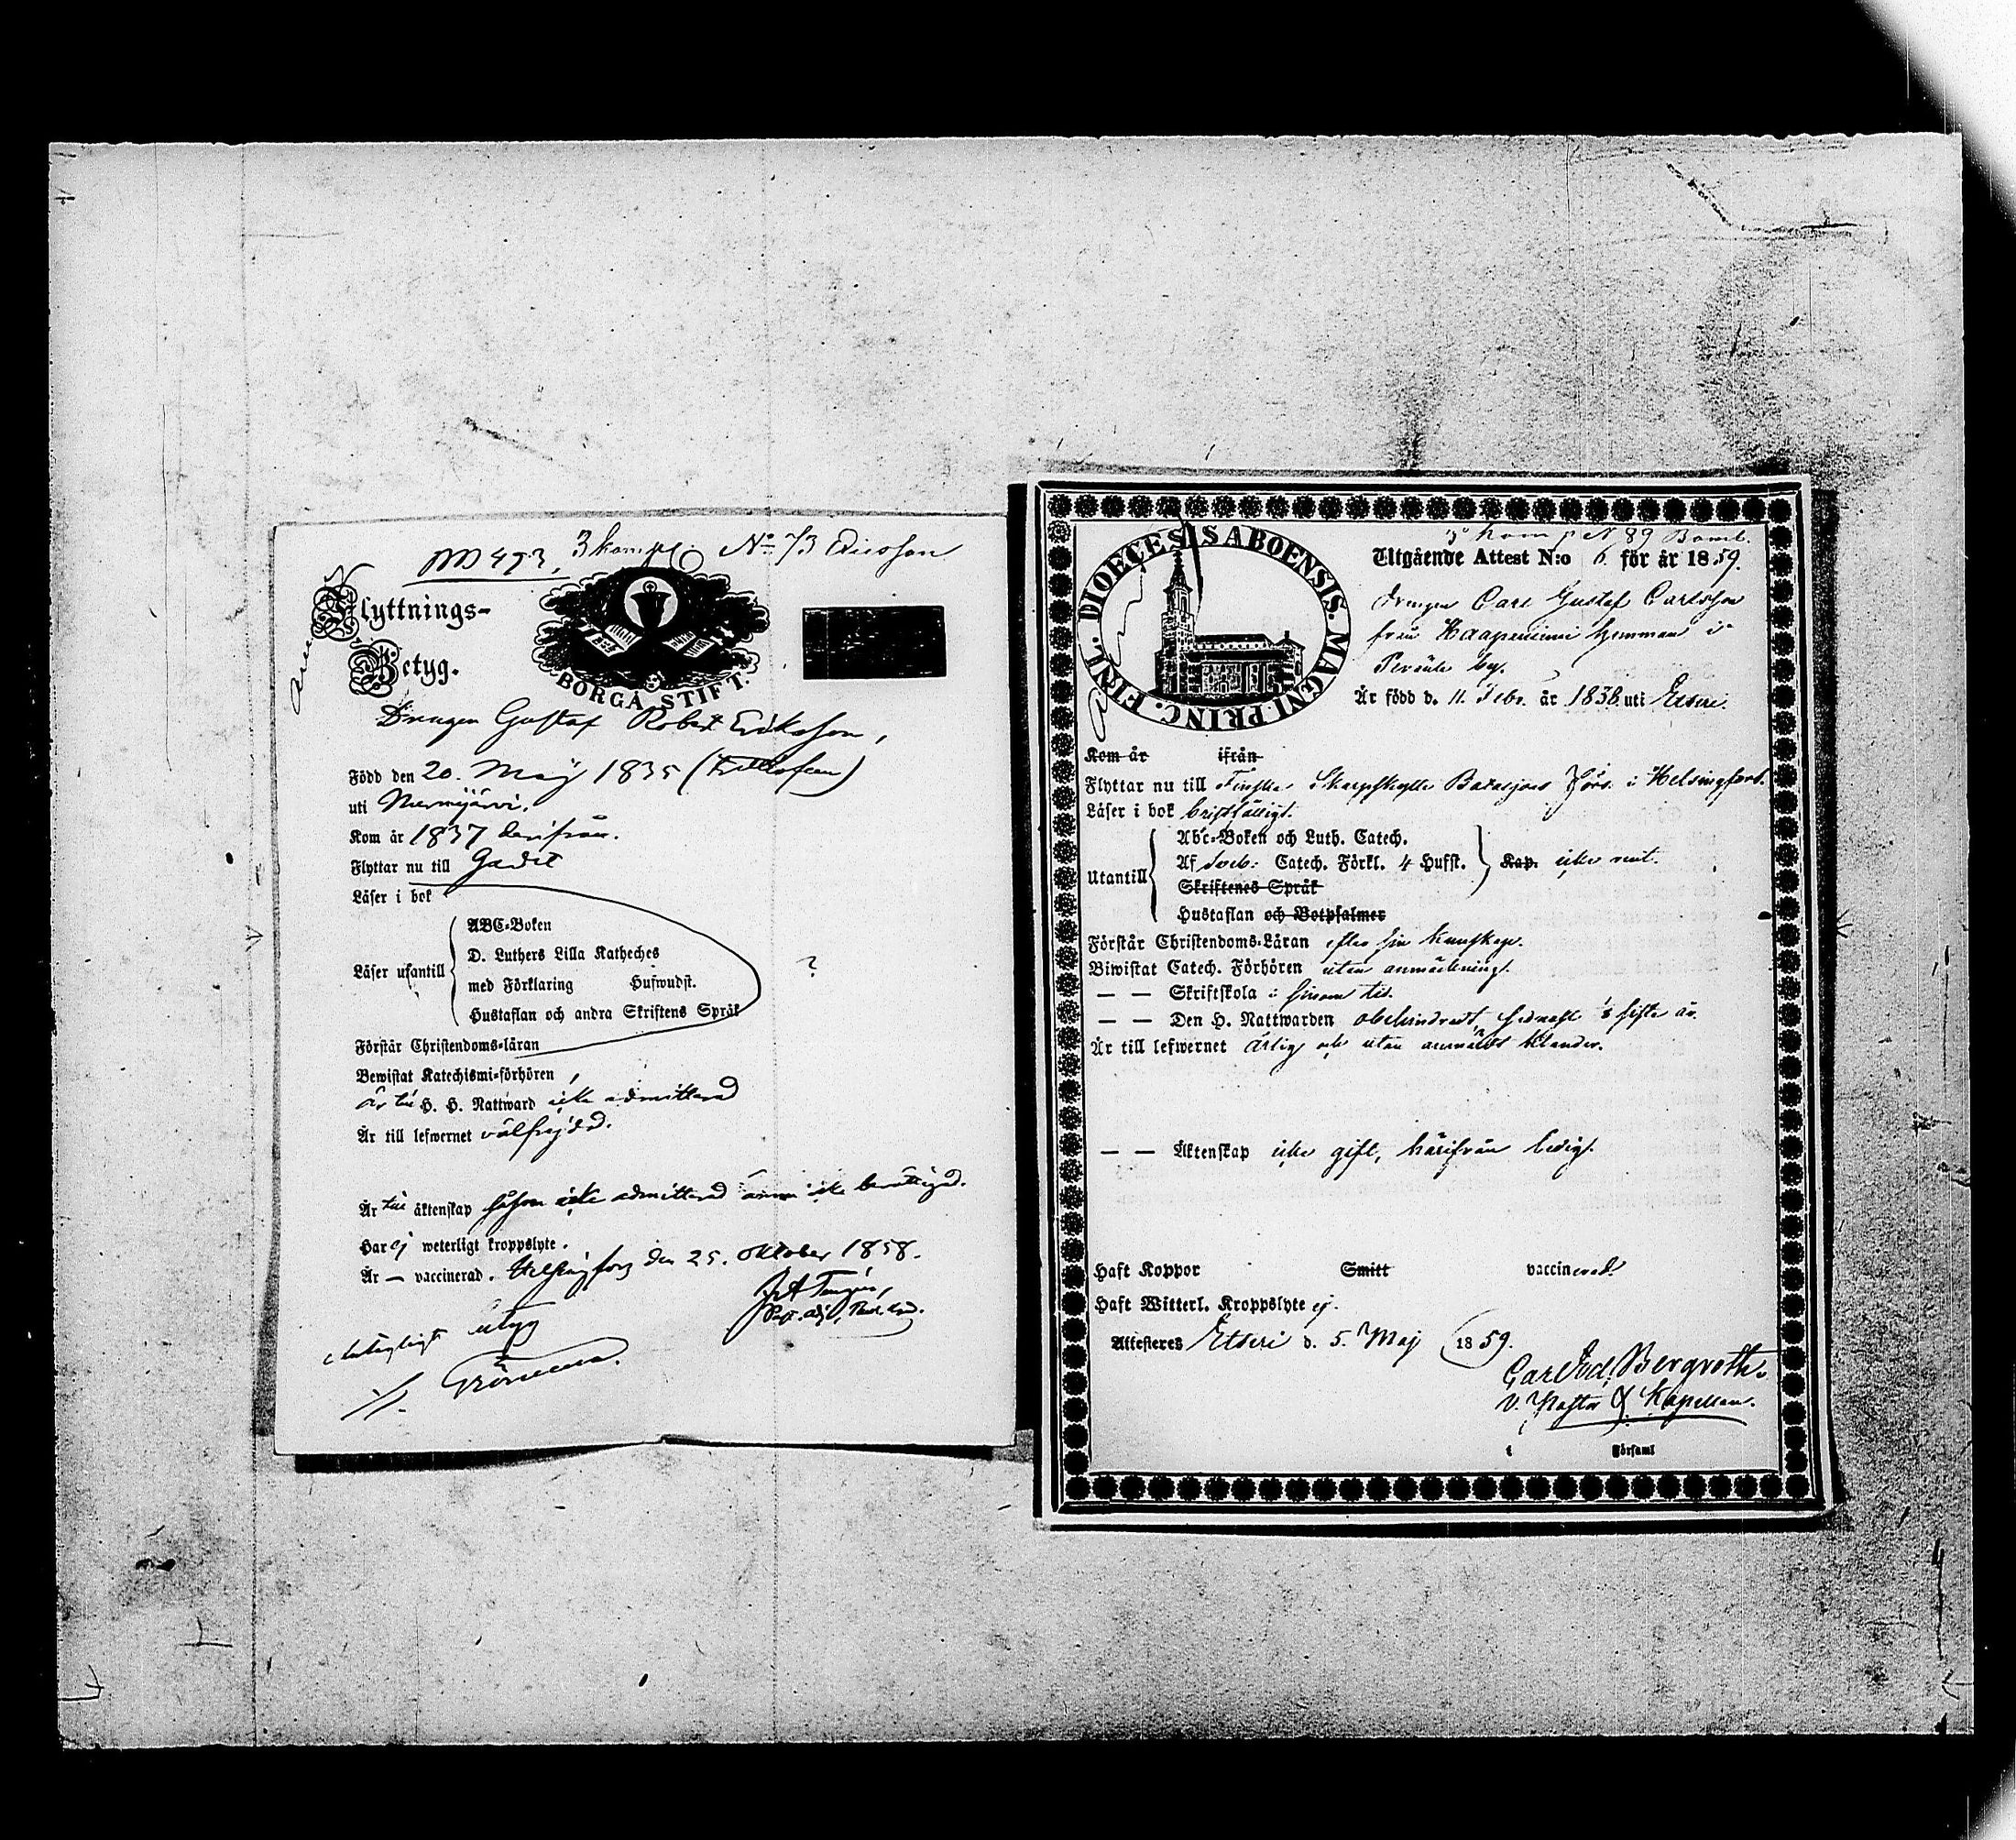 3 komp. No 73 Ericsson
Flyttnings-
Betyg.
BORGÅ STIFT.
Drengen Gustaf Robert Eriksson,
Född den 20. Maj 1835
uti Nurmijärvi.
Kom år 1837 derifrån.
Flyttar nu till
Läser i bok
Läser utantill
ABC-Boken
D. Luthers Lilla Katheches
med Förklaring Hufwudst.
Hustaflan och andra Skriftens Språk
?
Förstår Christendoms-läran
Bewistat Katechismi-förhören
är till H. H. Nattward icke admitterad
Är till lefwernet välfrejdad.
Är till äktenskap såsom icke admitterad ännu icke berättigad.
Har ej weterligt kroppslyte.
Är — vaccinerad. Helsingfors den 25. oktober 1858.
DIOECESIS ABOENSIS. MAGNI PRINC. FINL.
3 komp N 89 Bomb.
Utgående Attest N:o 6 för år 1859.
drengen Carl Gustaf Carlsson
från Haapaniemi hemman i
by.
Är född d. 11. Febr. år 1838 uti Etseri.
Kom år ifrån
Flyttar nu till Finska Skarpskytte Bataljons Förs. i Helsingfors.
Läser i bok bristfälligt.
Utantill
Abc-Boken och Luth. Catech.
Af Sveb: Catech. Förkl. 4 Hufst. Kap. icke rent.
Skriftenes Språk
Hustaflan och Botpsalmer
Förstår Christendoms-Läran efter sin kunskap.
Biwistat Catech. Förhören utan anmärkning.
— — Skriftskola i sinom tid.
— — Den H. Nattwarden obehindradt sednast i sistl. år.
Är till lefwernet ärlig och utan anmäldt klander.
— — Äktenskap icke gift, härifrån ledig.
Haft Koppor Smitt vaccinerad
Haft Witterl. Kroppslyte ej.
Attesteres Etseri d. 5. Maj 1859.
Carl Fred. Bergroth.
V. Pastor & Kapellan.
i Församl